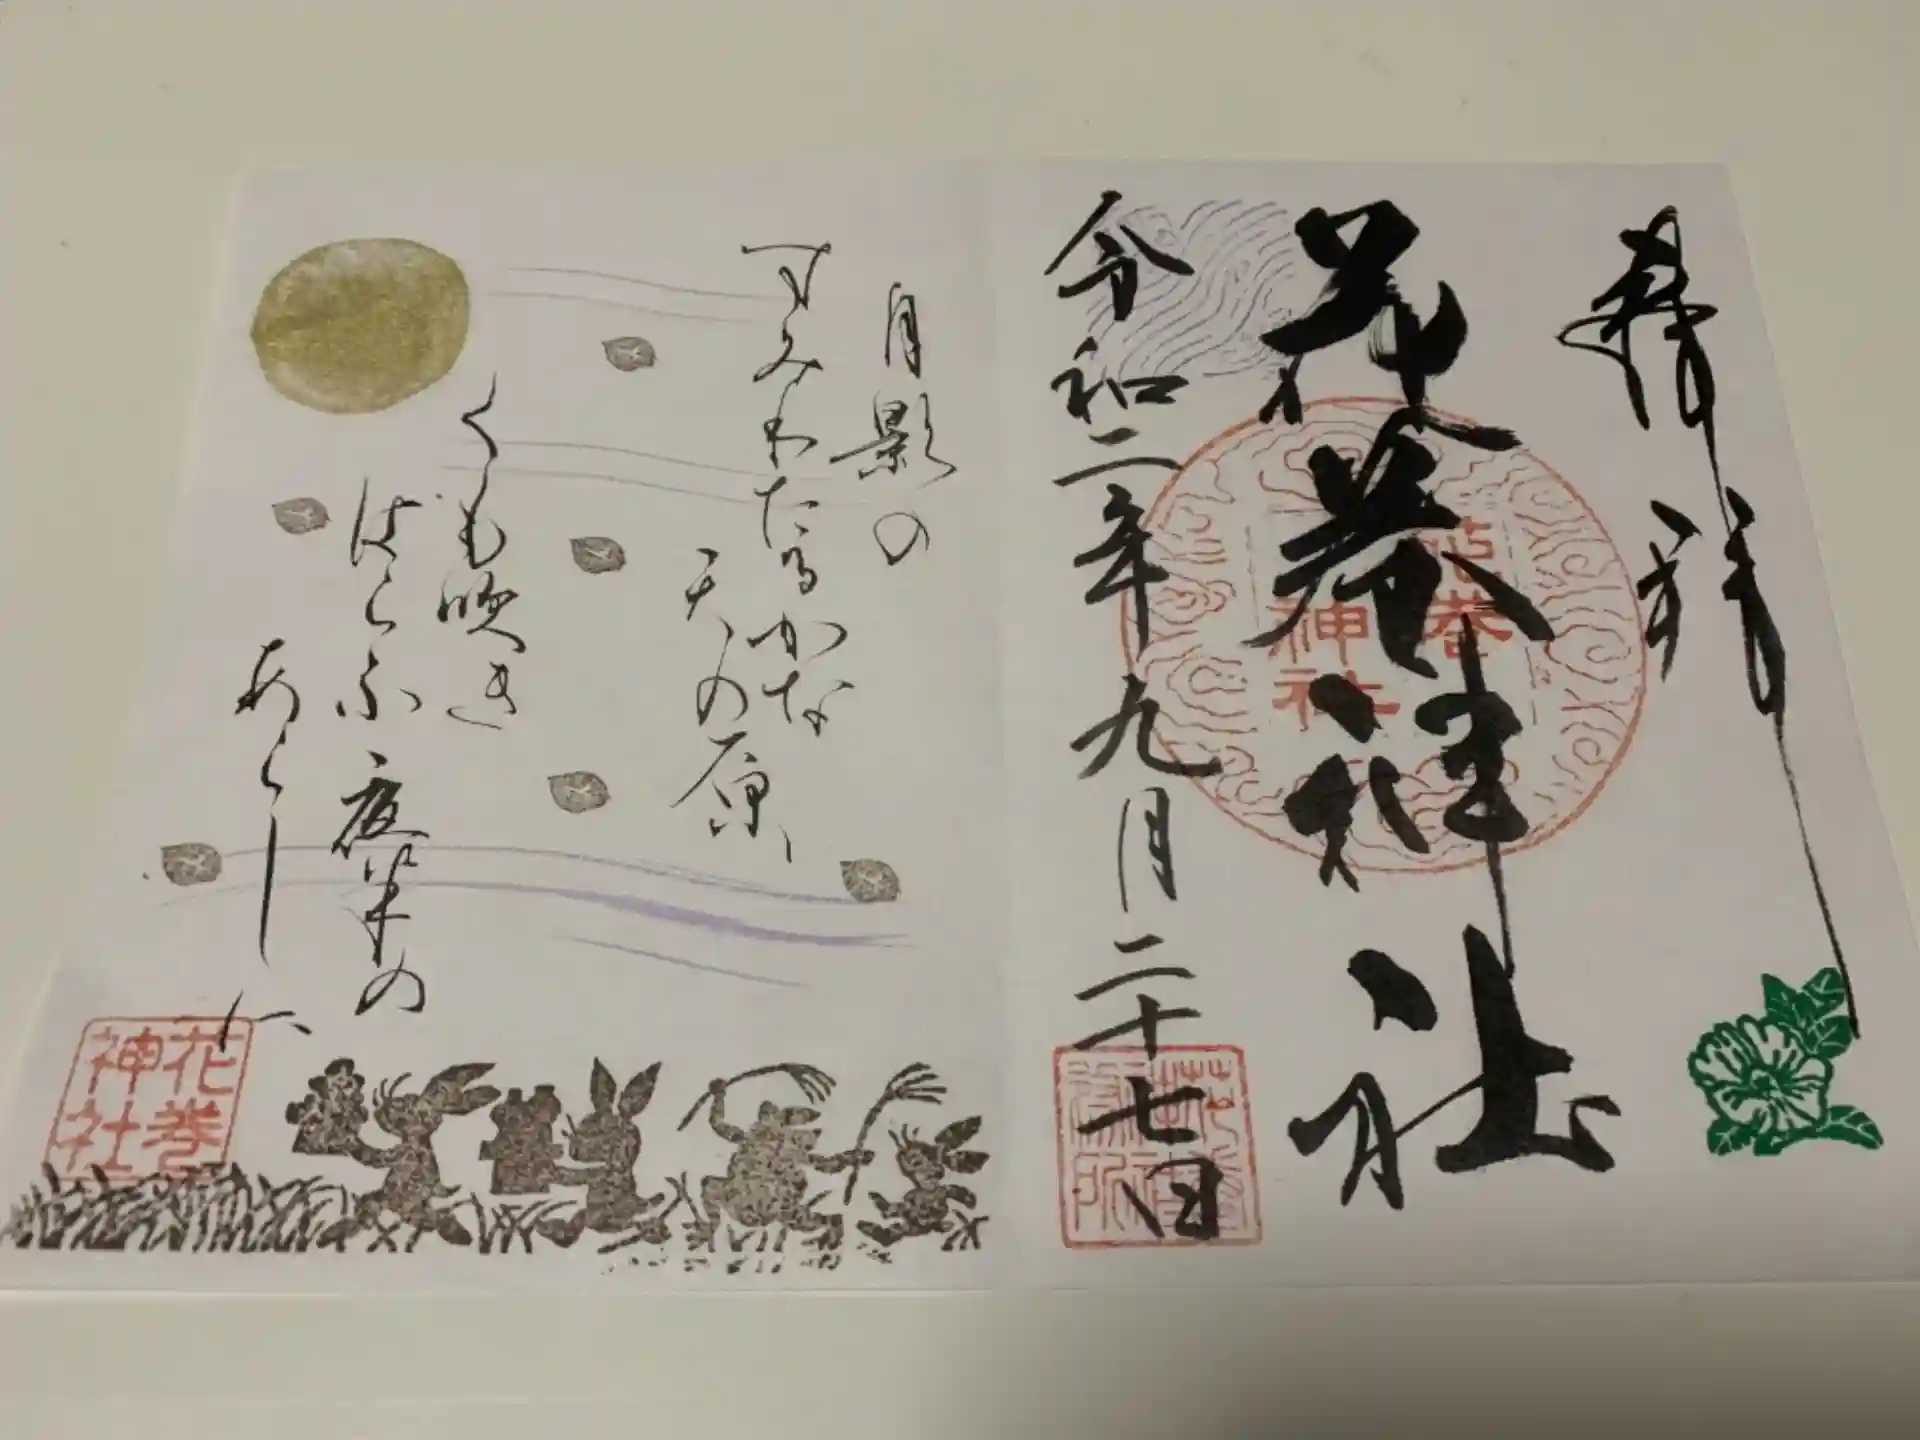 奉拝
花巻神社
令和二年九月二十七日
花巻
神社
月影の
すみわたるかな
天の原
くも吹き
はらふ夜半の
あらしに
花巻
神社